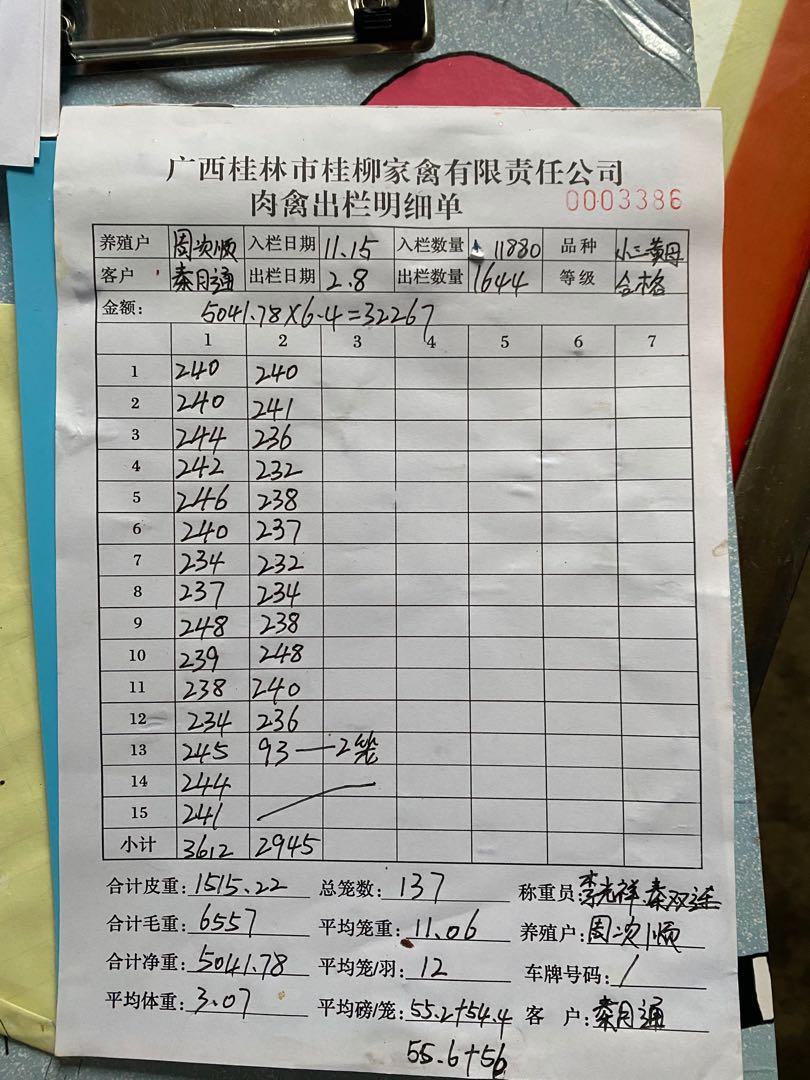 广西桂林市桂柳家禽有限责任公司
肉禽出栏明细单 0003386
养殖户 周次顺 入栏日期 11.15 入栏数量 11880 品种 小三黄母
客户 秦月通 出栏日期 2.8 出栏数量 1644 等级 合格
金额: 5041.78×6.4=32267
1 2 3 4 5 6 7
1 240 240
2 240 241
3 244 236
4 242 232
5 246 238
6 240 237
7 234 232
8 237 234
9 248 238
10 239 248
11 238 240
12 234 236
13 245 93—2笼
14 244
15 241
小计 3612 2945
合计皮重: 1515.22 总笼数: 137 称重员: 李光祥 秦双连
合计毛重: 6557 平均笼重: 11.06 养殖户: 周次顺
合计净重: 5041.78 平均笼/羽: 12 车牌号码: /
平均体重: 3.07 平均磅/笼: 55.2+54.4 客 户: 秦月通
55.6+56